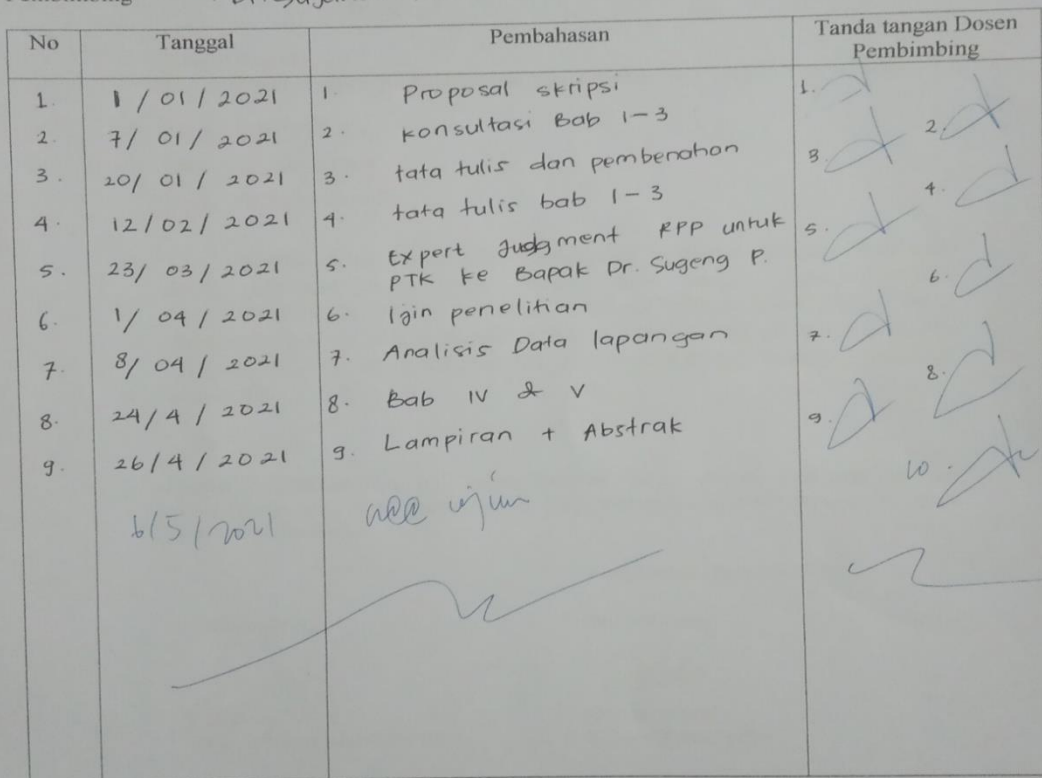 No Tanggal Pembahasan Tanda tangan Dosen
Pembimbing
1. 1/01/2021 1. Proposal skripsi 1.
2. 7/01/2021 2. Konsultasi Bab 1-3 2.
3. 20/01/2021 3. tata tulis dan pembenahan 3.
4. 12/02/2021 4. tata tulis bab 1-3 4.
5. 23/03/2021 5. Expert Judgment RPP untuk 5.
PTK ke Bapak Dr. Sugeng P.
6. 1/04/2021 6. Ijin penelitian 6.
7. 8/04/2021 7. Analisis Data lapangan 7.
8. 24/4/2021 8. Bab IV & V 8.
9. 26/4/2021 9. Lampiran + Abstrak 9.
6/5/2021 ujian 10.